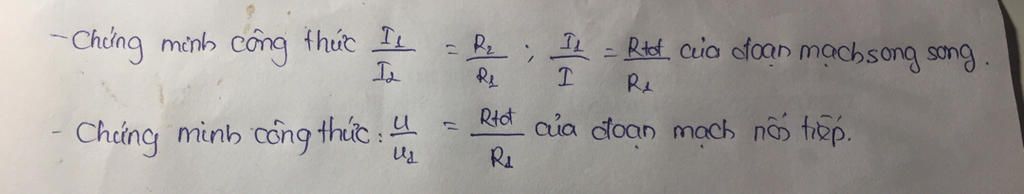 - Chứng minh công thức I1/I2 = R2/R1 ; I1/I = Rtđ/R1 của đoạn mạch song song.
- Chứng minh công thức: U/U1 = Rtđ/R1 của đoạn mạch nối tiếp.